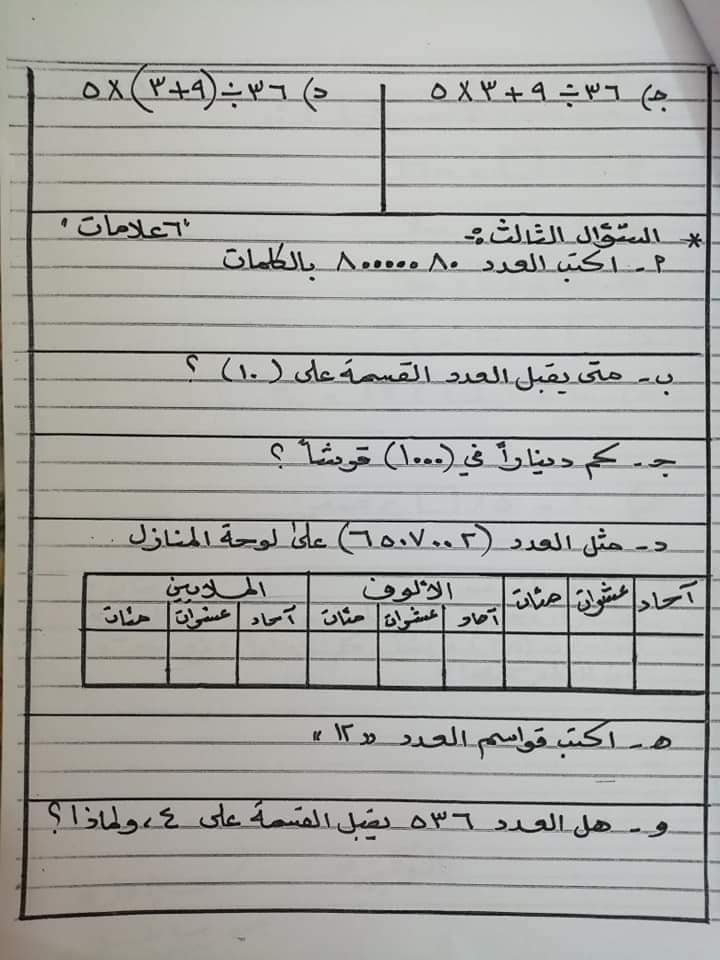 ج) ٣٦ ÷ ٩ + ٣ × ٥
د) ٣٦ ÷ (٩+٣) × ٥
* السؤال الثالث:- "٦علامات"
٢- اكتب العدد ٨٠٠٠٠٠٨٠ بالكلمات
ب- متى يقبل العدد القسمة على (١٠) ؟
جـ- كم ديناراً في (١٠٠٠) قرشاً ؟
د- مثل العدد (٦٥٠٧٠٠٢) على لوحة المنازل .
آحاد عشرات مئات الألوف الملايين
آحاد عشرات مئات آحاد عشرات مئات
هـ- اكتب قواسم العدد "١٢"
و- هل العدد ٥٣٦ يقبل القسمة على ٤ ، ولماذا ؟